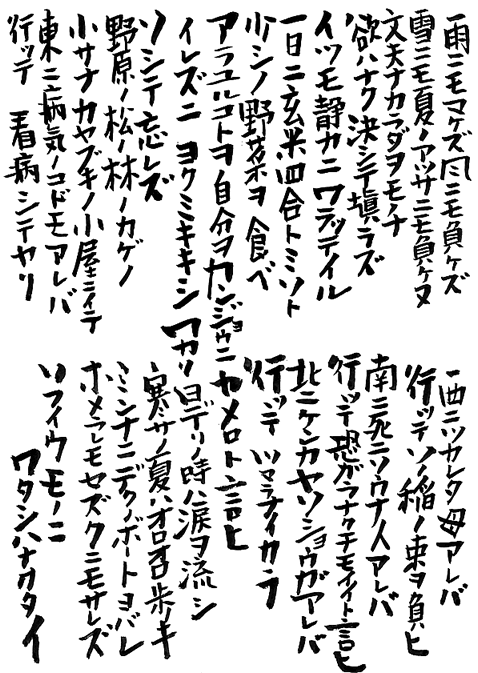 雨ニモマケズ風ニモ負ケズ
雪ニモ夏ノアツサニモ負ケヌ
丈夫ナカラダヲモチ
欲ハナク決シテ瞋ラズ
イツモ静カニワラッテイル
一日ニ玄米四合トミソト
少シノ野菜ヲ食ベ
アラユルコトヲ自分ヲカンジョウニ
イレズニヨクミキキシワカリ
ソシテ忘レズ
野原ノ松ノ林ノカゲノ
小サナカヤブキノ小屋ニイテ
東ニ病気ノコドモアレバ
行ッテ看病シテヤリ
西ニツカレタ母アレバ
行ッテソノ稲ノ束ヲ負ヒ
南ニ死ニソウナ人アレバ
行ッテ恐ガラナクテモイイト言ヒ
北ニケンカヤソショウガアレバ
行ッテツマラナイカラ
ヤメロト言ヒ
日デリノ時ハ涙ヲ流シ
寒サノ夏ハオロオロ歩キ
ミンナニデクノボートヨバレ
ホメラレモセズクニモサレズ
ソフイウモノニ
ワタシハナリタイ